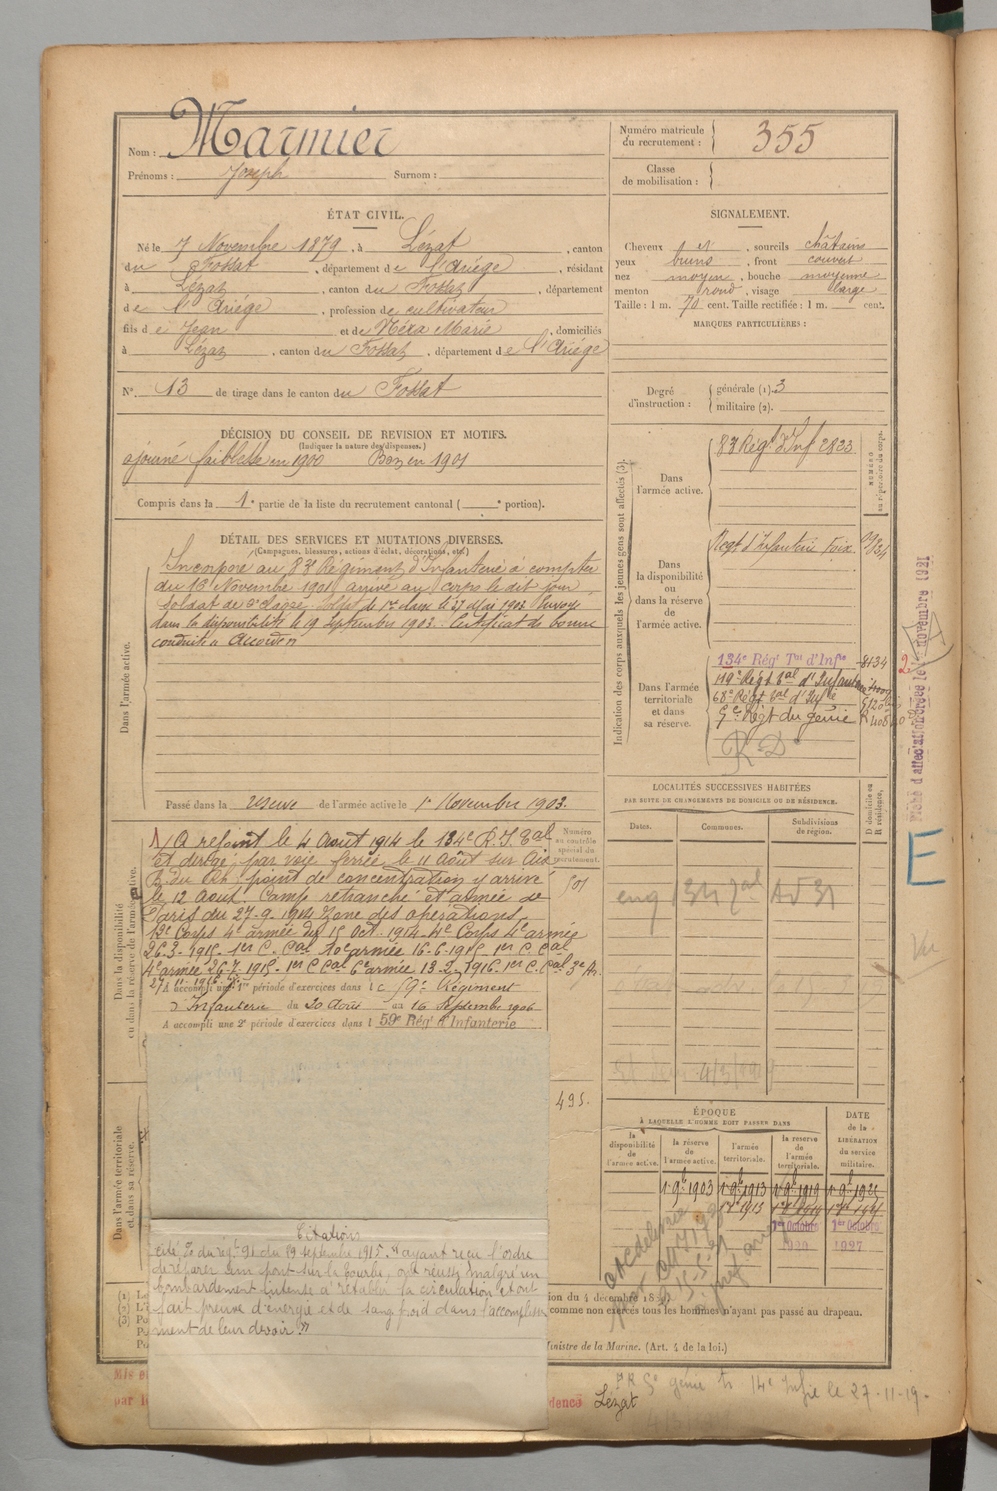 Nom : Marmier
Prénoms : Joseph Surnom :
Numéro matricule du recrutement : 355
Classe de mobilisation :
ÉTAT CIVIL.
Né le 7 Novembre 1879, à Lézat, canton
du Fossat, département de l'Ariège, résidant
à Lézat, canton du Fossat, département
de l'Ariège, profession de cultivateur
fils de Jean et de Néxa Marie, domiciliés
à Lézat, canton du Fossat, département de l'Ariège
N° 13 de tirage dans le canton du Fossat
SIGNALEMENT.
Cheveux et, sourcils châtains
yeux bruns, front couvert
nez moyen, bouche moyenne
menton rond, visage large
Taille : 1 m. 70 cent. Taille rectifiée : 1 m. cent.
MARQUES PARTICULIÈRES :
Degré d'instruction : générale (1). 3
militaire (2).
DÉCISION DU CONSEIL DE REVISION ET MOTIFS.
(Indiquer la nature des dispenses.)
ajourné faiblesse en 1900 Bon en 1901
Compris dans la 1e partie de la liste du recrutement cantonal ( e portion).
DÉTAIL DES SERVICES ET MUTATIONS DIVERSES.
(Campagnes, blessures, actions d'éclat, décorations, etc.)
Dans l'armée active.
Incorporé au 83e Régiment d'Infanterie à compter
du 16 Novembre 1901 arrivé au corps le dit jour
soldat de 2e classe. Soldat de 1re classe le 27 Mai 1903 Envoyé
dans la disponibilité le 19 Septembre 1903. Certificat de bonne
conduite Accordé
Passé dans la réserve de l'armée active le 1er Novembre 1903.
Indication des corps auxquels les jeunes gens sont affectés (3).
NUMÉRO au répertoire du corps.
Dans l'armée active.
83 Régt d'Inf 2823
Dans la disponibilité ou dans la réserve de l'armée active.
Regt d'Infanterie Foix.
Dans l'armée territoriale et dans sa réserve.
134e Régt Tal d'Infie 8134
119e Régt Tal d'Infanterie
68e Régt Tal d'Infie
5e Régt du génie
R D
Fiche d'affectation créée le novembre 1921
2
E
Vu
Dans la disponibilité ou dans la réserve de l'armée active.
Numéro au contrôle spécial du recrutement.
501
A rejoint le 4 Août 1914 le 134e R.I. Tal
et dirigé par voie ferrée le 11 août sur Aix
B. du Rh. point de concentration y arrivé
le 12 Août. Camp retranché et armée de
Paris du 27-9-1914 Zone des opérations
12e Corps 4e armée du 15 Oct. 1914. 4e Corps 4e armée
26-3-1915. 1er C. Cal 10e armée 16-6-1915 1er C. Cal
4e armée 26-7-1915. 1er C Cal 6e armée 13-2-1916. 1er C. Cal 3e Ar.
A accompli une 1re période d'exercices dans le 59e Régiment
d'Infanterie du 20 Août au 16 Septembre 1906
A accompli une 2e période d'exercices dans l 59e Rég d'Infanterie
495.
LOCALITÉS SUCCESSIVES HABITÉES
PAR SUITE DE CHANGEMENTS DE DOMICILE OU DE RÉSIDENCE.
Dates. Communes. Subdivisions de région. D domicile ou R résidence.
134 Tal
4/3/1919
Dans l'armée territoriale et dans sa réserve.
ÉPOQUE
À LAQUELLE L'HOMME DOIT PASSER DANS
la disponibilité de l'armée active. la réserve de l'armée active. l'armée territoriale. la réserve de l'armée territoriale.
DATE de la LIBÉRATION du service militaire.
1er 9b 1903 1er 9b 1913 1er 9b 1919
1er Octobre 1er Octobre
1927
Citations
cité à du régt 91 du 29 septembre 1915. "ayant reçu l'ordre
de réparer un pont sur la Tourbe, ont réussi malgré un
bombardement intense à rétablir la circulation et ont
fait preuve d'énergie et de sang froid dans l'accomplisse
ment de leur devoir."
comme non exercés tous les hommes n'ayant pas passé au drapeau.
Ministre de la Marine. (Art. 4 de la loi.)
Lézat
5e génie 14e Infie le 27-11-19.